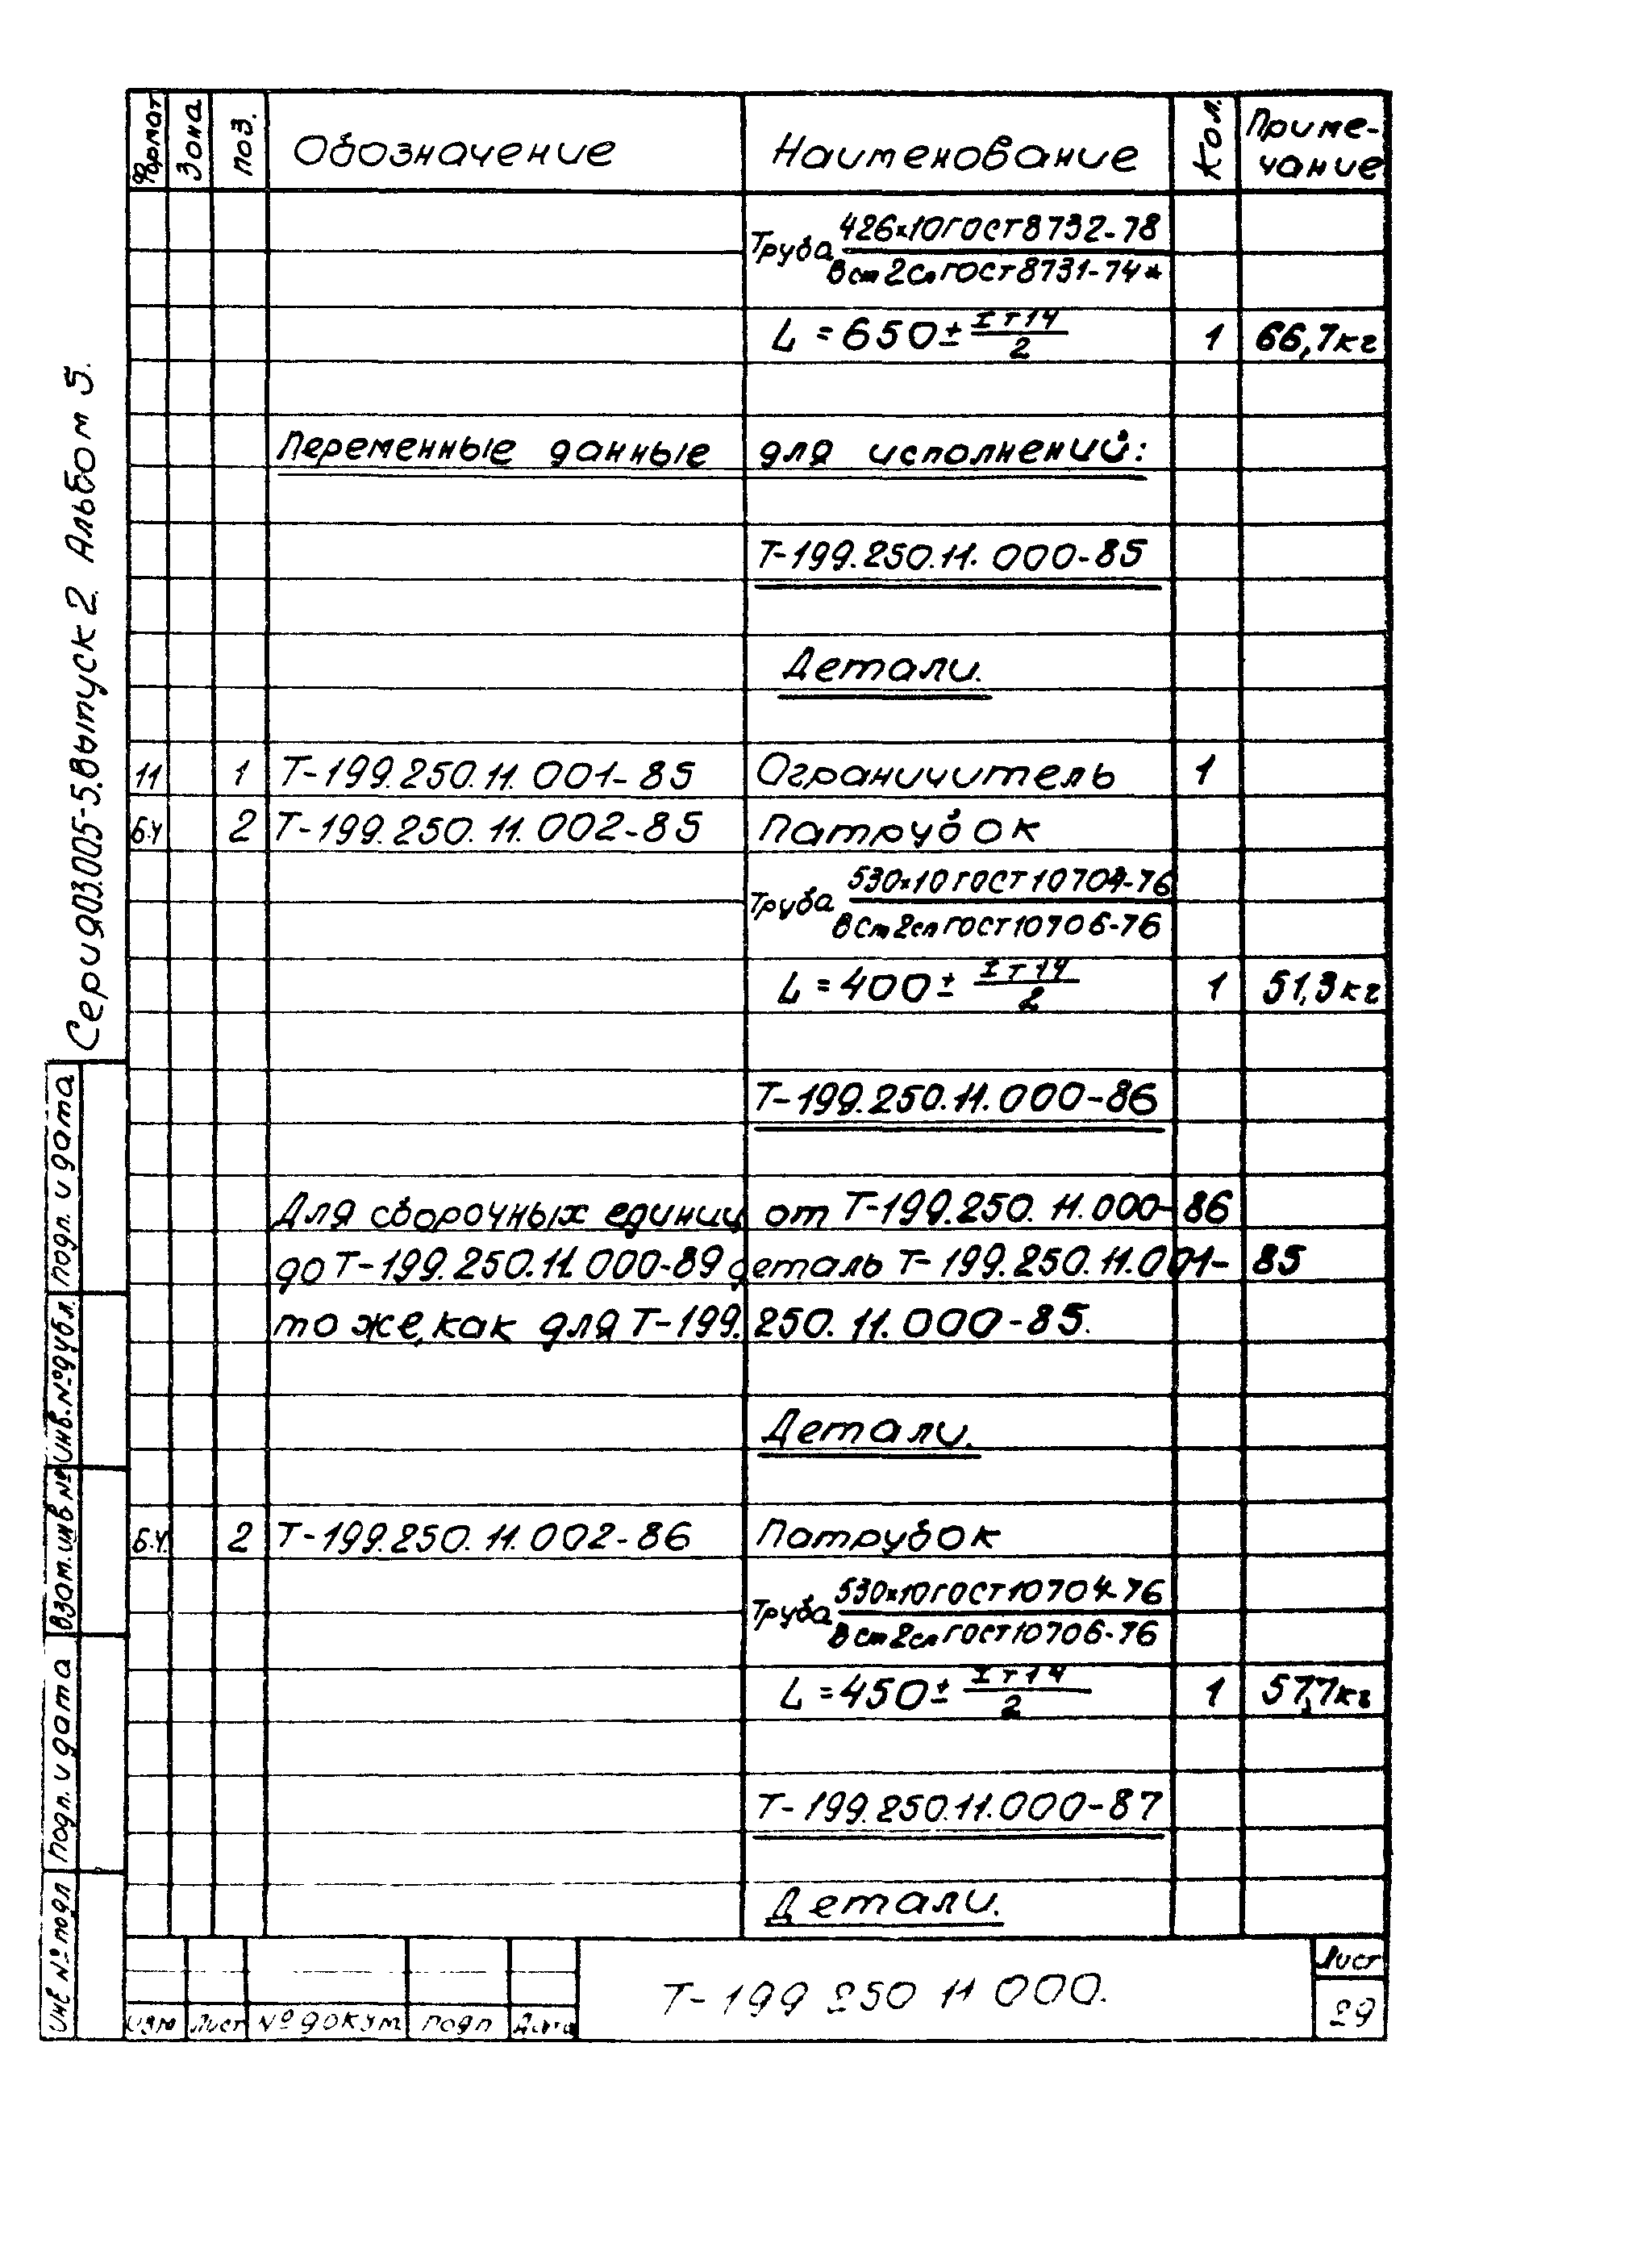 Формат Зона поз. Обозначение Наименование Кол. Приме-
чание
Труба 426×10 ГОСТ 8732-78
В ст 2сп ГОСТ 8731-74*
L = 650 ± IT14/2 1 66,7 кг
Переменные данные для исполнений:
Т-199.250.11.000-85
Детали.
11 1 Т-199.250.11.001-85 Ограничитель 1
Б.Ч 2 Т-199.250.11.002-85 Патрубок
Труба 530×10 ГОСТ 10704-76
В Ст 2сп ГОСТ 10706-76
L = 400 ± IT14/2 1 51,3 кг
Т-199.250.11.000-86
Для сборочных единиц от Т-199.250.11.000-86
до Т-199.250.11.000-89 деталь Т-199.250.11.001-85
то же, как для Т-199.250.11.000-85.
Детали.
Б.Ч. 2 Т-199.250.11.002-86 Патрубок
Труба 530×10 ГОСТ 10704-76
В ст 2сп ГОСТ 10706-76
L = 450 ± IT14/2 1 57,7 кг
Т-199.250.11.000-87
Детали.
Изм Лист № докум подп Дата
Т-199 250 11 000.
Лист
29
Серия 03.005-5. Выпуск 2. Альбом 5.
подп. и дата
инв. № дубл.
взам. инв №
Подп. и дата
Инв № подл